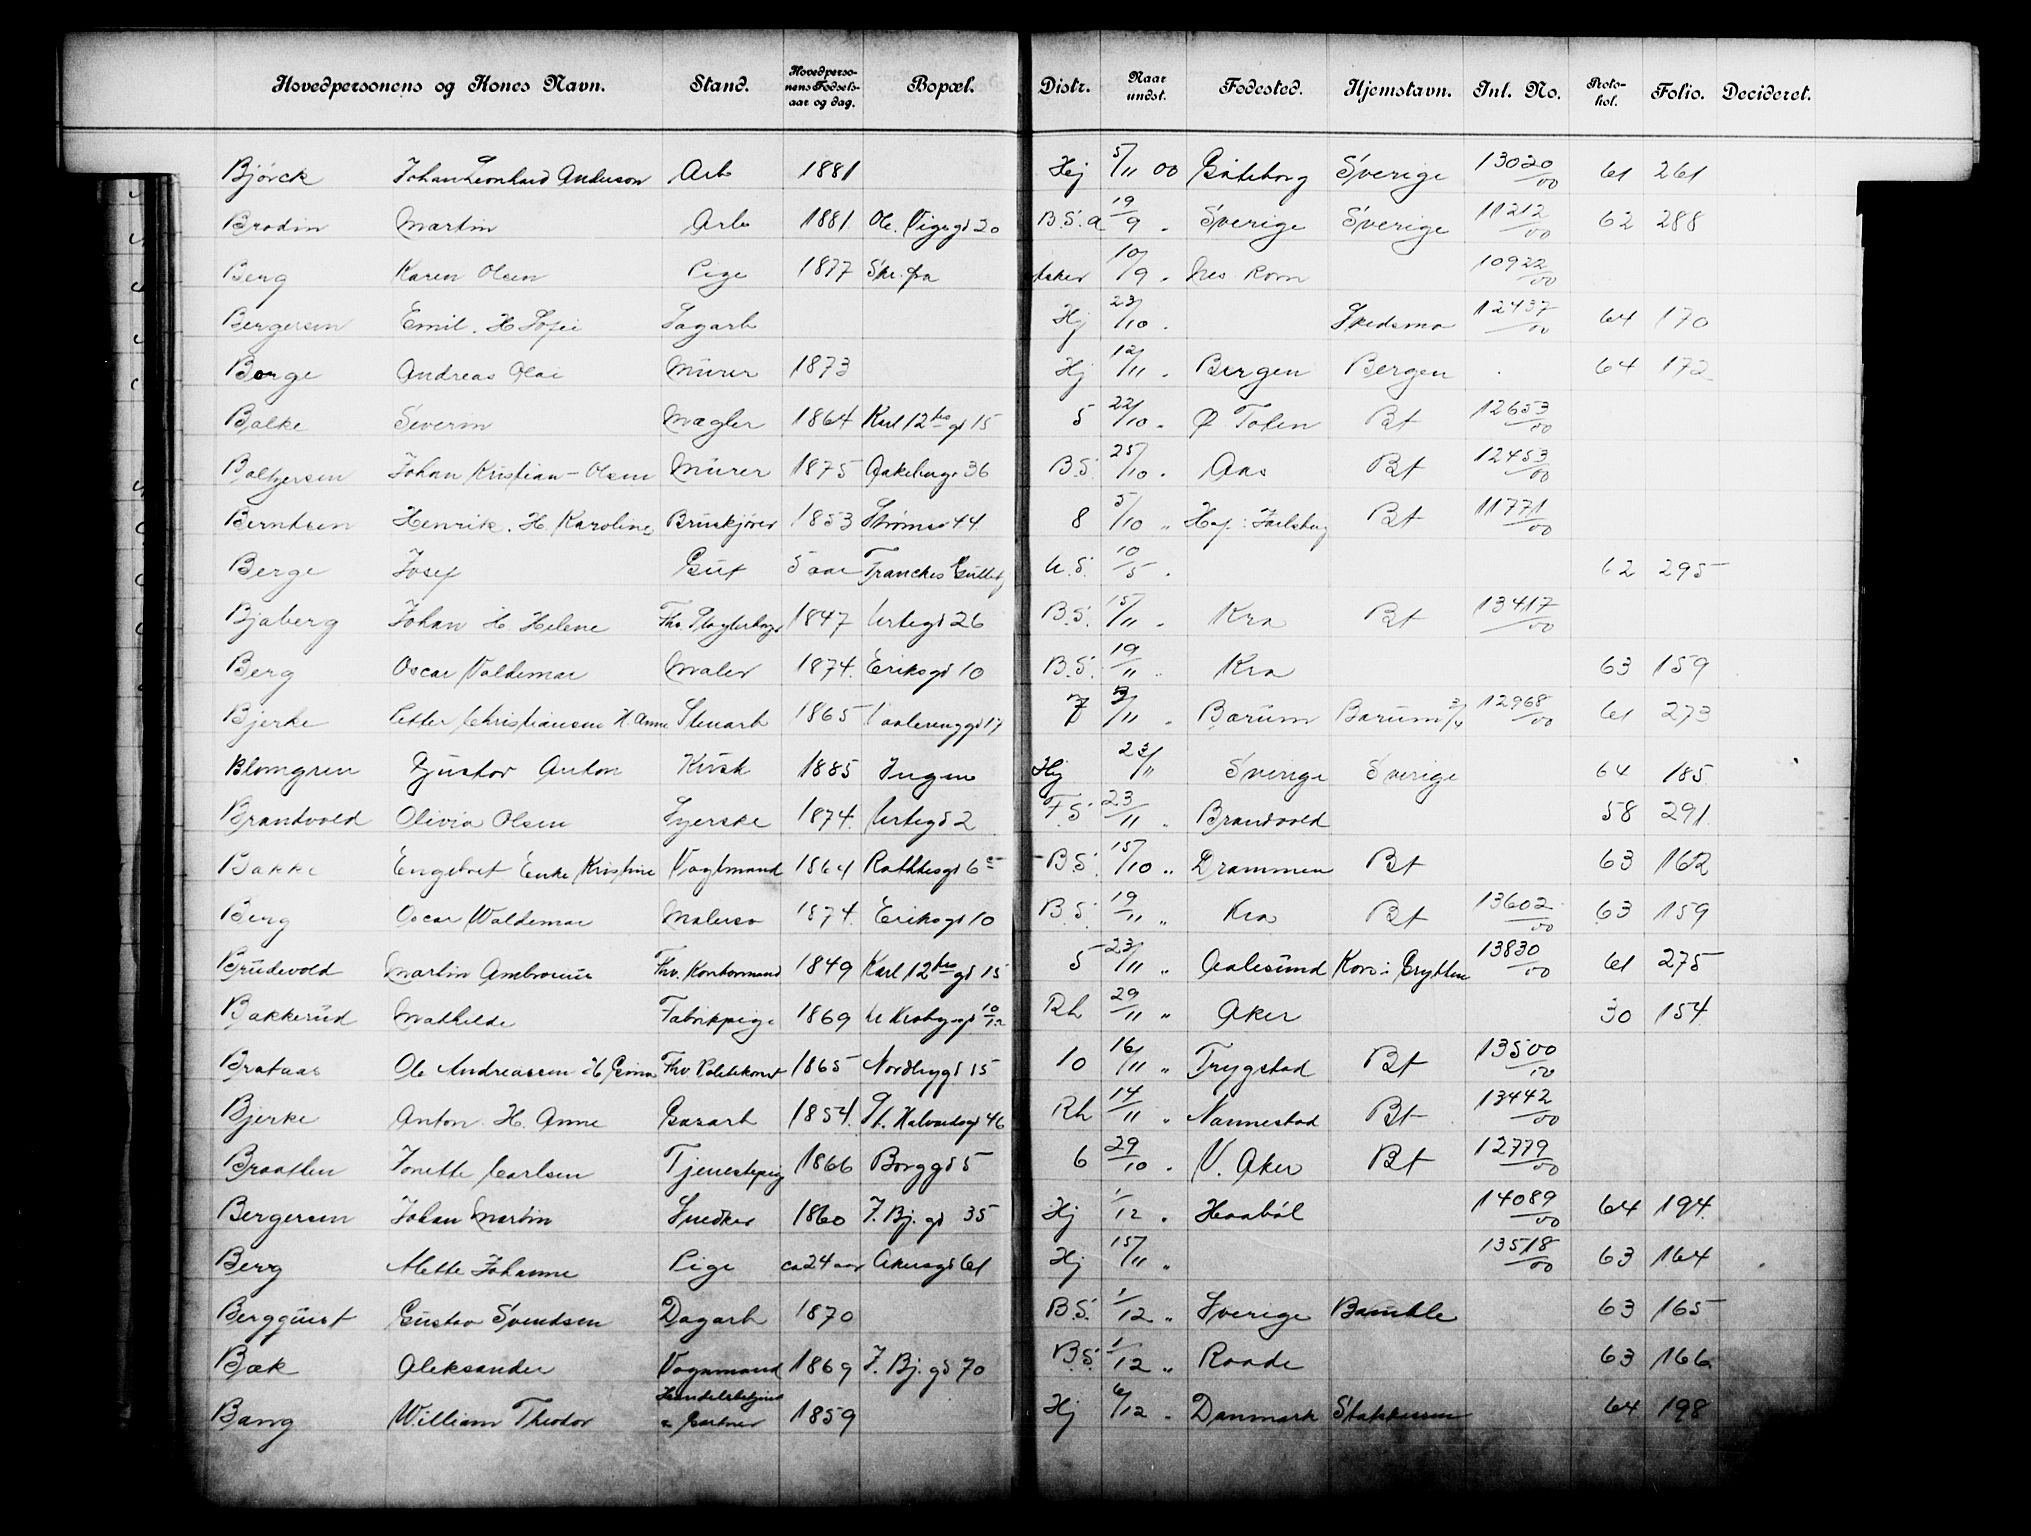 Hovedpersonens og Kones Navn. Stand. Hovedpersonens Fødselsaar og dag. Bopæl. Distr. Naar undst. Fødested. Hjemstavn. Inl. No. Protokol. Folio. Decideret.
Bjørck Johan Leonhard Anderson Arb 1881 Hj 5/11 00 Göteborg Sverige 13020/00 61 261
Brodin Martin Arb 1881 Ole Vigsgd 20 B.S. a 19/9 " Sverige Sverige 11212/00 62 288
Berg Karen Olsen Pige 1877 Skr. fra Aker 10/9 " Nes Rom 10922/00
Bergersen Emil. H Sofie Dagarb Hj 23/10 " Skedsmo 12437/00 64 170
Borge Andreas Olai Mürer 1873 Hj 12/11 " Bergen Bergen 64 172
Balke Severin Mægler 1864 Karl 12tes gd 15 5 22/10 " Ø Toten Bt 12653/00
Baltzersen Johan Kristian-Olsen Mürer 1875 Aakebergv 36 B.S. 25/10 " Aas Bt 12453/00
Berntsen Henrik. H. Karoline Bruskjører 1853 Strømsv 44 8 5/10 " Hof: Jarlsberg Bt 11771/00
Berge Josef Gut 5 aar Franckes U.S. 10/5 " 62 295
Bjaberg Johan H Helene Fhv. 1847 Urtegd 26 B.S. 15/11 " Kra Bt 13417/00
Berg Oscar Valdemar Maler 1874. Eriksgd 10 B.S. 19/11 " Kra 63 159
Bjerke Petter Christiansen H. Anne Stenarb 1865 Vaalerenggd 17 7 3/11 " Bærum Bærum 3/4 12968/00 61 273
Blomgren Gustav Anton Kusk 1885 Ingen Hj 23/11 Sverige Sverige 64 185
Brandvold Olivia Olsen Syerske 1874. Urtegd 2 F.S. 23/11 " Brandvold 58 291.
Bakke Engebret Enke Kristine Vogtmand 1864 Rathkesgd 6 B.S. 15/10 " Drammen Bt 63 162
Berg Oscar Waldemar Malersv 1874. Eriksgd 10 B.S. 19/11 " Kra Bt 13602/00 63 159
Brudevold Martin Ambrosius Fhv. Kontormand 1849 Karl 12tes gd 15 5 23/11 " Aalesund Kors: Grytten 13830/00 61 275
Bakkerud Mathilde Fabrikpige 1869 Rh 29/11 " Aker 30 154
Brataas Ole Andreassen H Fhv. Politikonst 1865 Nordbygd 15 10 16/11 " Trygstad Bt 13500/00
Bjerke Anton. H. Anne Gasarb 1854. St. Halvardsgd 46 Rh 14/11 " Nannestad Bt 13442/00
Braatlen Jonette Carlsen Tjenestepig 1866 Borggd 5 6 29/10 " V. Aker Bt 12779/00
Bergersen Johan Martin Snedker 1860 T. Bj. gd 35 Hj 1/12 " Haabøl 14089/00 64 194.
Berg Mette Johanne Pige ca 24 aar Akersgd 61 Hj 15/11 " 13518/00 63 164
Bergquist Gustav Svendsen Dagarb 1870 B.S. 1/12 " Sverige Bamble 63 165
Bæk Aleksander Vognmand 1869 T. Bj. gd 70 B.S. 1/12 " Raade 63 166
Bang William Theodor Handelsbetjent & Gartner 1859 Hj 6/12 " Danmark 64 198